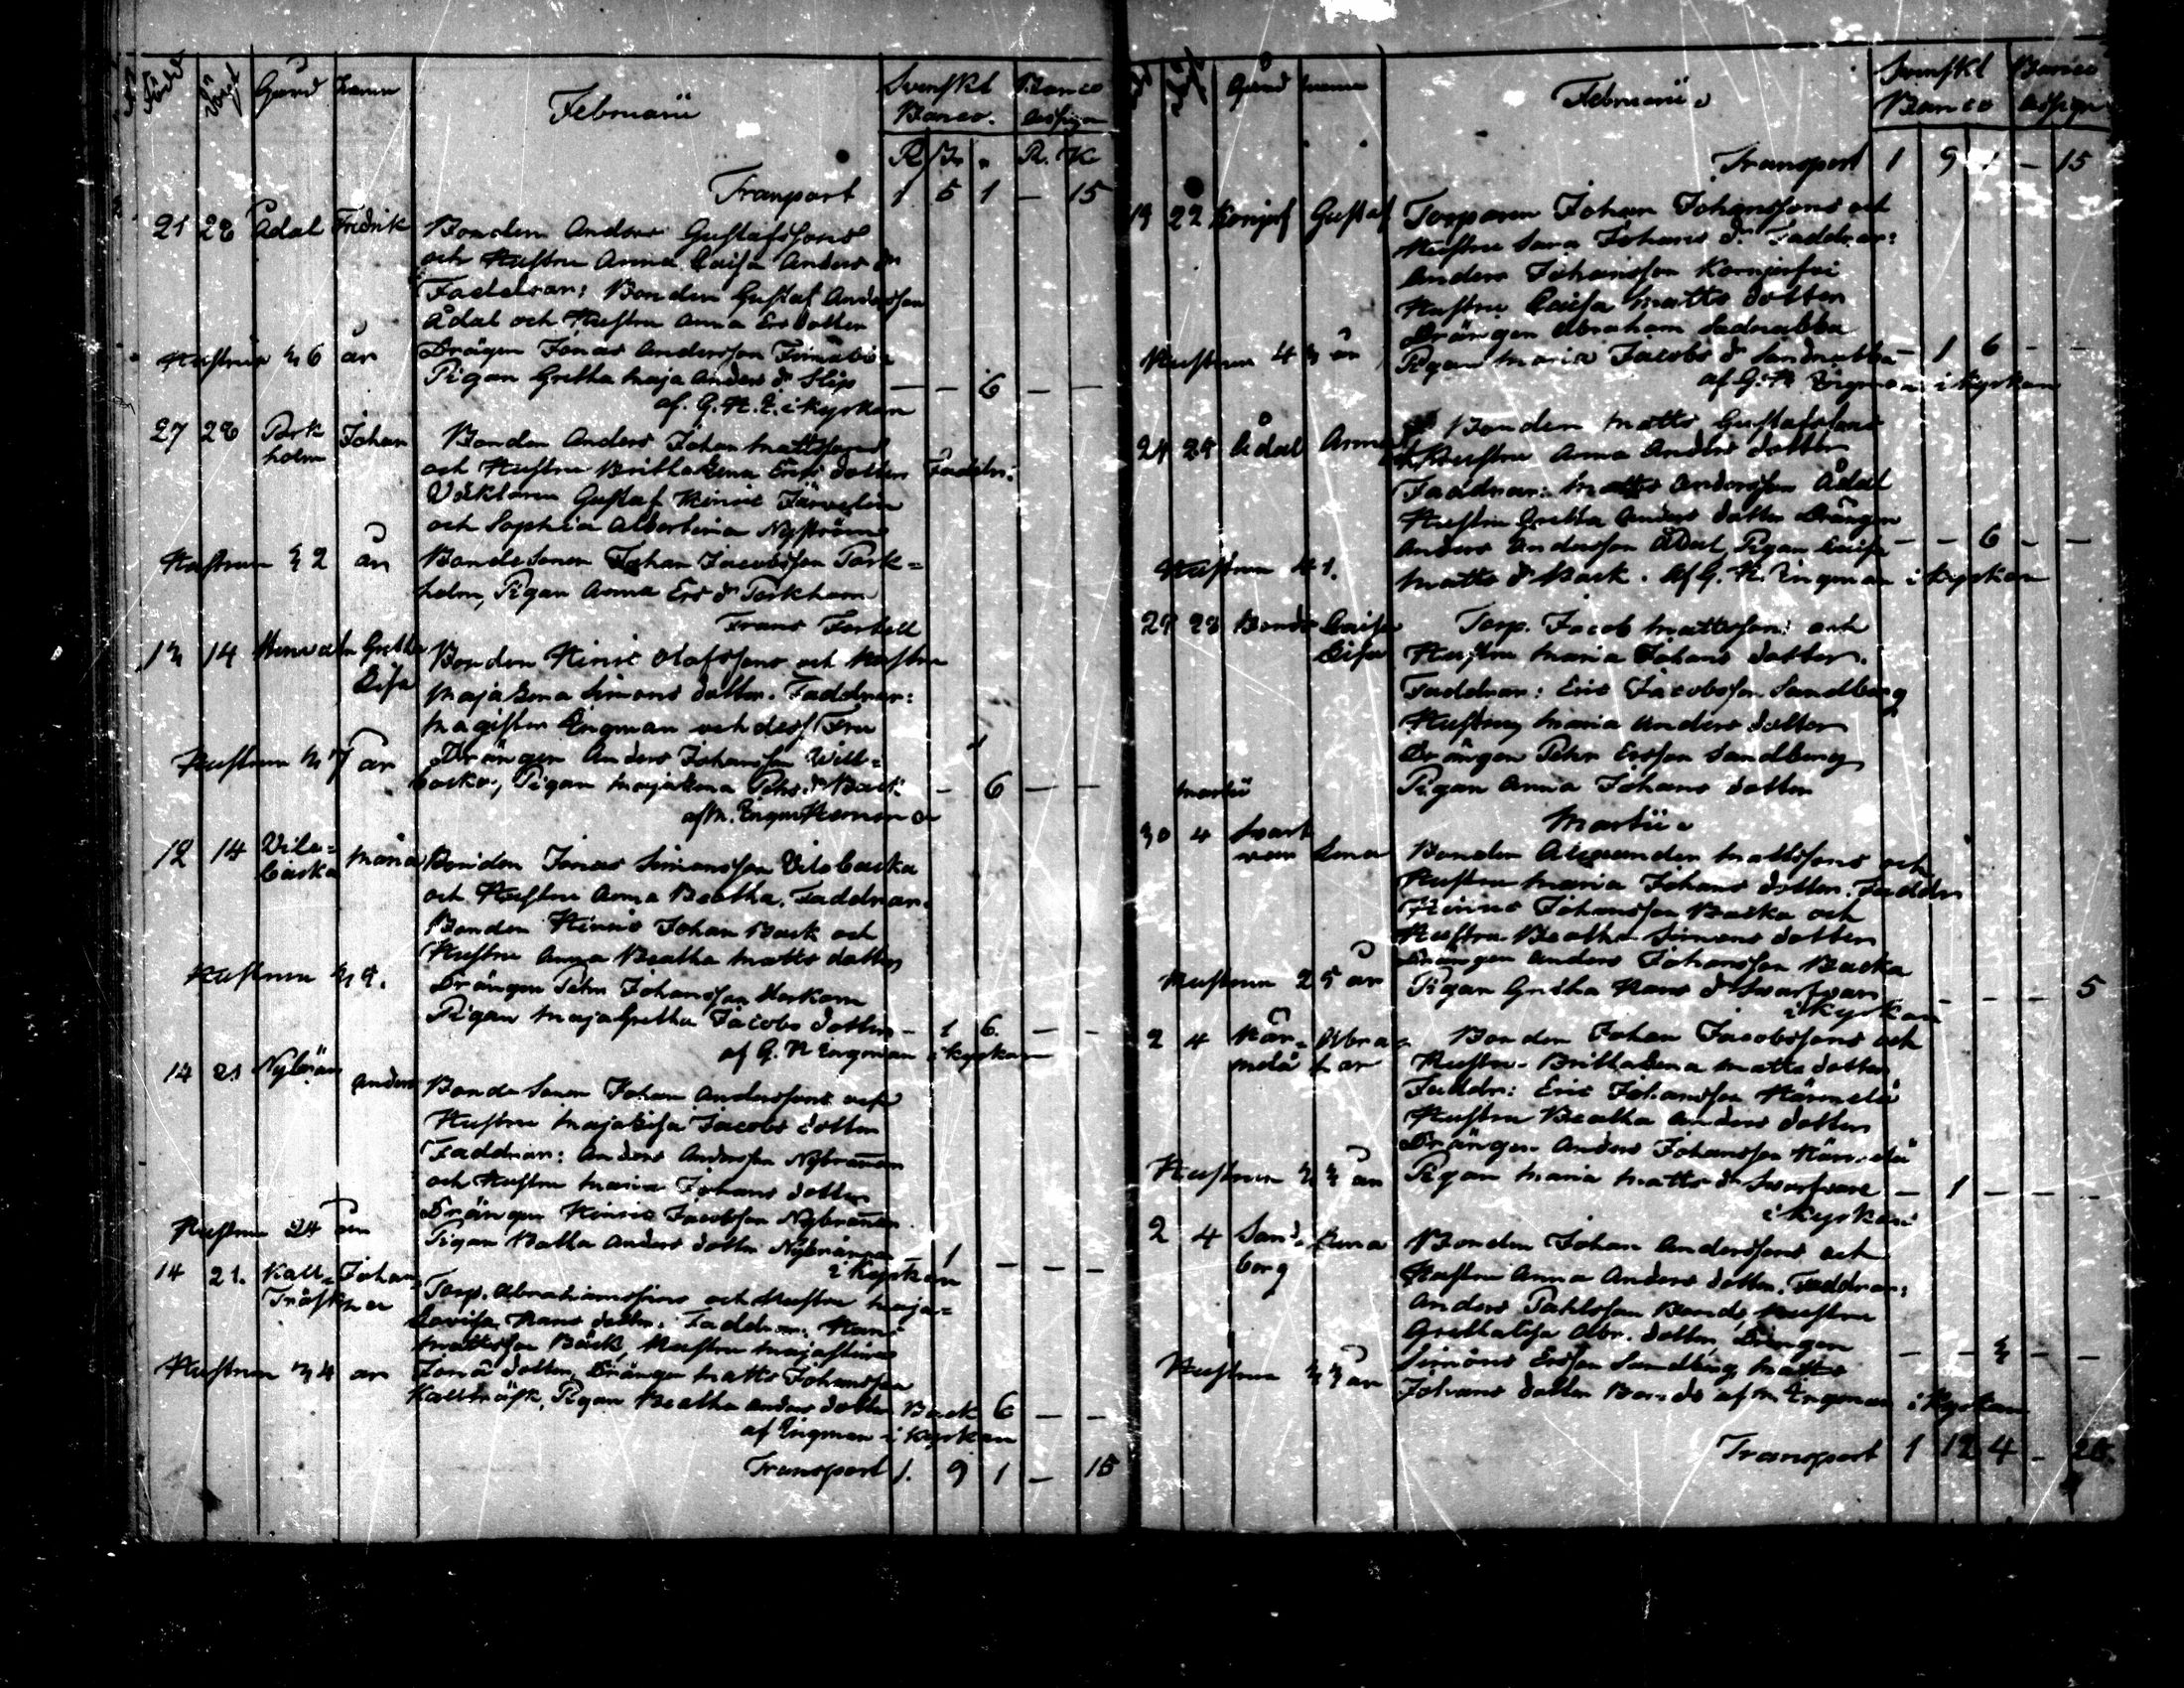 Född Gård Namn Februarii Svenskt Banco. Banco Assign
R. R. K
Transport 1 5 1 – 15
21 28 Ådal Fredrik Bonden Anders Gustafssons
och Hustru Anna Caisa Anders dr
Faddrar: Bonden Gustaf Andersson
Ådal och Hustru Anna Ersdotter
Drägen Jonas Andersson
Hustrun 36 år
Pigan Gretha Maja Anders dr Slip – – 6 – –
af. G. H. E. i kyrkan
27 28 Perk Johan Bonden Anders Johan Mattssons
holm och Hustru Britha Lena Ers dotter Faddrr:
Gustaf Henric
och Sophia Albertina Nyström
Hustrun 32 år Bondesonen Johan Jacobsson Perk=
holm, Pigan Anna Ers dr
Frans Forsell
13 14 Gretha Bonden Henric Olofssons och Hustru
Lisa Maja Lena Simons dotter. Faddrar:
Magister Engman och dess Fru
Hustrun 37 år Drängen Anders Johansson Will=
backa, Pigan Maja Lena Pehrs dr Back – 6 – –
12 14 Vile= Maria Bonden Jonas Simonsson Vilobacka
backa och Hustru Anna Beatha. Faddrar.
Bonden Henric Johan Back och
Hustru Anna Beatha Matts dotter
Hustrun 39. Drängen Pehr Johansson
Pigan Maja Gretha Jacobs dotter – 1 6. – –
af G. H Engman i kyrkan
14 21 Nybrän Anders Bonde Sonen Johan Anderssons och
Hustru Maja Lisa Jacobs dotter
Faddrar: Anders Andersson Nybrännan
och Hustru Maria Johans dotter
Drängen Henric Jacobsson Nybrännan
Hustrun 24 år
Pigan Anders dotter Nybränna 1 – – –
i Kyrkan
14 21. Kall= Johan Torp. Abrahamssons och Hustru Maja=
Träsk Lovisa Hans dotter. Faddrar: Hans
Mattsson Bäck, Hustru Maja Stina
Hustrun 34 år Jonä dotter, Drängen Matts Johansson
Kallträsk, Pigan Beatha Anders dotter Back 6 – –
af Engman i kyrkan
Transport 1. 9 1 – 15
Gård Namn Februarii Svenskt Banco Banco Assign
Transport 1 9 1 – 15
19 22 Gustaf Torparen Johan Johanssons och
Hustru Sara Johans dr Faddrar:
Anders Johansson
Hustru Caisa Matts dotter
Drängen Abraham Sadnabba
Hustrun 43 år Pigan Maria Jacobs dr Sandnabba – 1 6 – –
af G. H Engman i kyrkan
24 25 Ådal Anna Bonden Matts Gustafssons
Hustru Anna Anders dotter
Faddrar: Matts Andersson Ådal
Hustru Gretha Anders dotter Drängen
Anders Andersson Ådal, Pigan Caisa – – 6 – –
Hustrun 41. Matts dr Back. Af G. H. Engman i kyrkan
27 28 Bonds Caisa Torp. Jacob Mattssons och
Lisa Hustru Maria Johans dotter.
Faddrar: Eric Jacobsson Sandberg
Hustru Maria Anders dotter
Drängen Pehr Ersson Sandberg
Martii Pigan Anna Johans dotter
Martii
30 4 Svart Lena Bonden Alexander Mattssons och
var Hustru Maria Johans dotter. Faddr
Henric Johansson Backa och
Hustru Beatha Simons dotter
Drängen Anders Johansson Backa
Hustrun 25 år Pigan Gretha Hans dr Svartvar – – – – 5
i kyrkan
2 4 Här= Abra= Bonden Johan Jacobssons och
melä har Hustru Britha Lena Matts dotter
Faddr: Eric Johansson Härmälä
Hustru Beatha Anders dotter
Drängen Anders Johansson
Hustrun 33 år Pigan Maria Matts dr Svartvare – 1 – – –
i kyrkan
2 4 Sand= Lena Bonden Johan Anderssons och
berg Hustru Anna Anders dotter. Faddrar:
Anders Bonds, Hustru
Gretha Lisa Abr. dotter, Drängen
Hustrun 33 år Simons Ersson Sandberg, Matts – – 3 – –
Johans dotter Bonds af M. Engman i kyrkan
Transport 1 12 4 – 20.